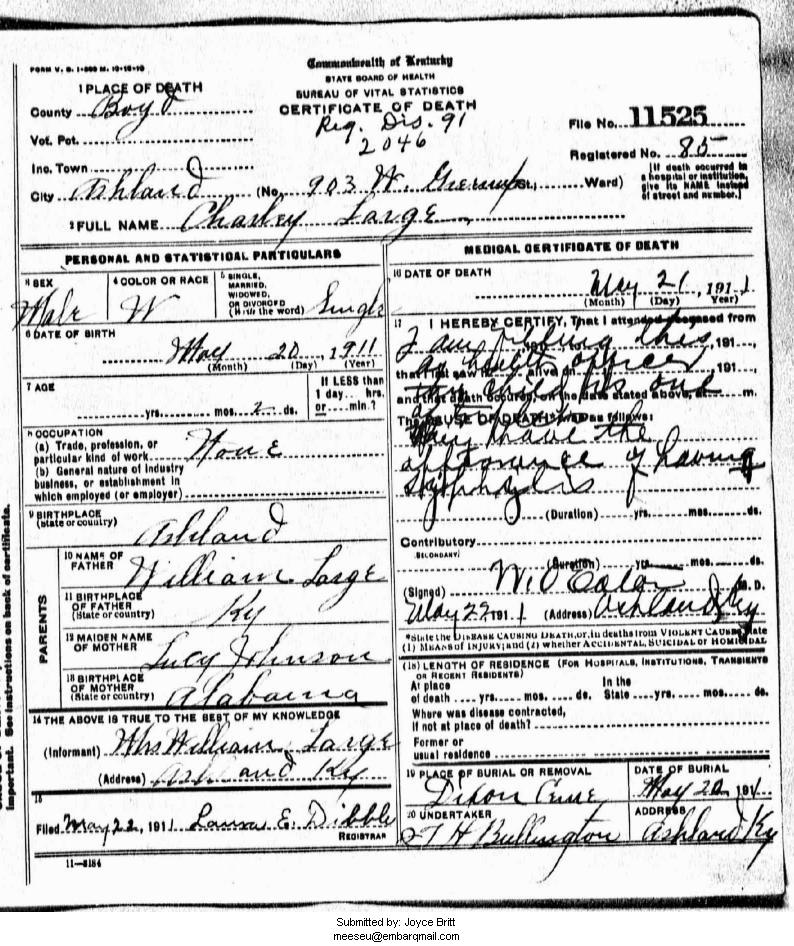 FORM V. S. 1-
Commonwealth of Kentucky
STATE BOARD OF HEALTH
BUREAU OF VITAL STATISTICS
CERTIFICATE OF DEATH
1 PLACE OF DEATH
County Boyd
Reg. Dis. 91
2046
Vot. Pct.
Inc. Town
City Ashland (No. 903 W. St., Ward)
File No. 11525
Registered No. 85
[If death occurred in
a hospital or institution,
give its NAME instead
of street and number.]
2 FULL NAME Charley Large
PERSONAL AND STATISTICAL PARTICULARS
3 SEX
Male
4 COLOR OR RACE
W
5 SINGLE,
MARRIED,
WIDOWED,
OR DIVORCED
(Write the word) Single
6 DATE OF BIRTH
May 20, 1911
(Month) (Day) (Year)
7 AGE
yrs. mos. 2 ds.
If LESS than
1 day hrs.
or min.?
8 OCCUPATION
(a) Trade, profession, or
particular kind of work None
(b) General nature of industry
business, or establishment in
which employed (or employer)
9 BIRTHPLACE
(State or country) Ashland
PARENTS
10 NAME OF
FATHER William Large
11 BIRTHPLACE
OF FATHER
(State or country) Ky
12 MAIDEN NAME
OF MOTHER Lucy Johnson
13 BIRTHPLACE
OF MOTHER
(State or country) Alabama
14 THE ABOVE IS TRUE TO THE BEST OF MY KNOWLEDGE
(Informant) Mrs William Large
(Address) Ashland Ky
15
Filed May 22, 1911 Laura E. Dibble
REGISTRAR
11-3184
MEDICAL CERTIFICATE OF DEATH
16 DATE OF DEATH
May 21, 1911
(Month) (Day) (Year)
17 I HEREBY CERTIFY, That I attended deceased from
191 , 191
that I last saw h alive on , 191
and that death occurred, on the date stated above, at m.
The CAUSE OF DEATH was as follows:
I am this
as health officer
this child was one
have the
appearance of having
(Duration) yrs. mos. ds.
Contributory
(SECONDARY)
(Duration) yrs. mos. ds.
(Signed) W. O. M. D.
May 22 1911 (Address) Ashland, Ky
*State the DISEASE CAUSING DEATH, or, in deaths from VIOLENT CAUSES, state
(1) MEANS OF INJURY; and (2) whether ACCIDENTAL, SUICIDAL or HOMICIDAL
(18) LENGTH OF RESIDENCE (FOR HOSPITALS, INSTITUTIONS, TRANSIENTS
OR RECENT RESIDENTS)
At place
of death yrs. mos. ds.
In the
State yrs. mos. ds.
Where was disease contracted,
if not at place of death?
Former or
usual residence
19 PLACE OF BURIAL OR REMOVAL
Dixon Ceme
DATE OF BURIAL
May 22 1911
20 UNDERTAKER
T H Bullington
ADDRESS
Ashland Ky
important. See instructions on back of certificate.
Submitted by: Joyce Britt
meeseu@embarqmail.com